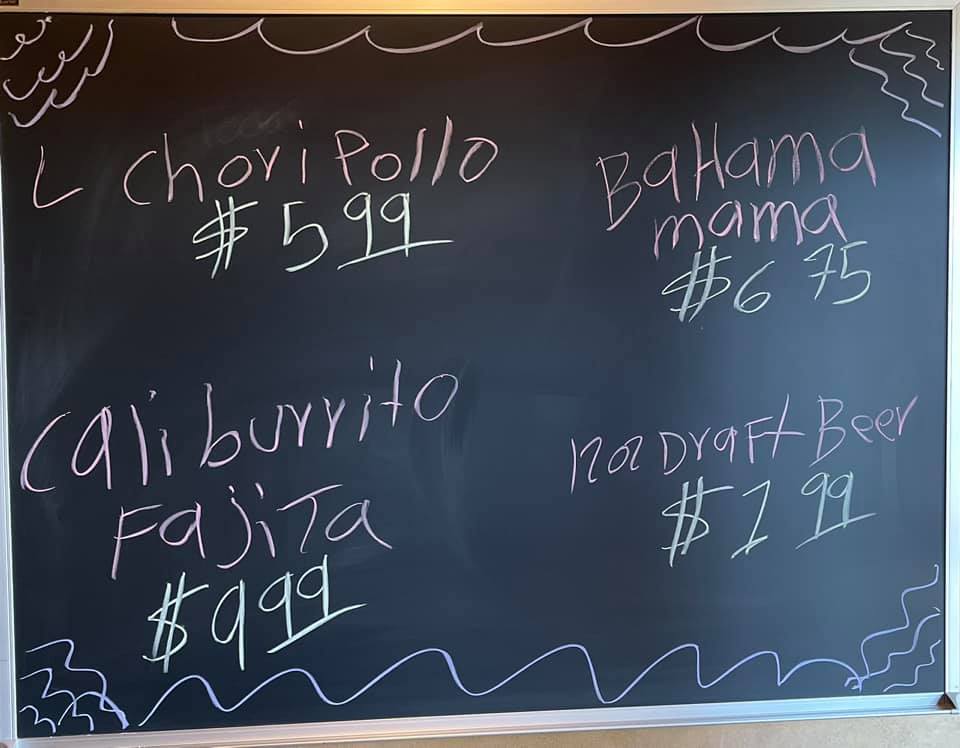 L Chori Pollo
$ 5 99
BaHama
mama
$6 75
Caliburrito
FajiTa
$ 9 99
12oz Draft Beer
$ 1 99